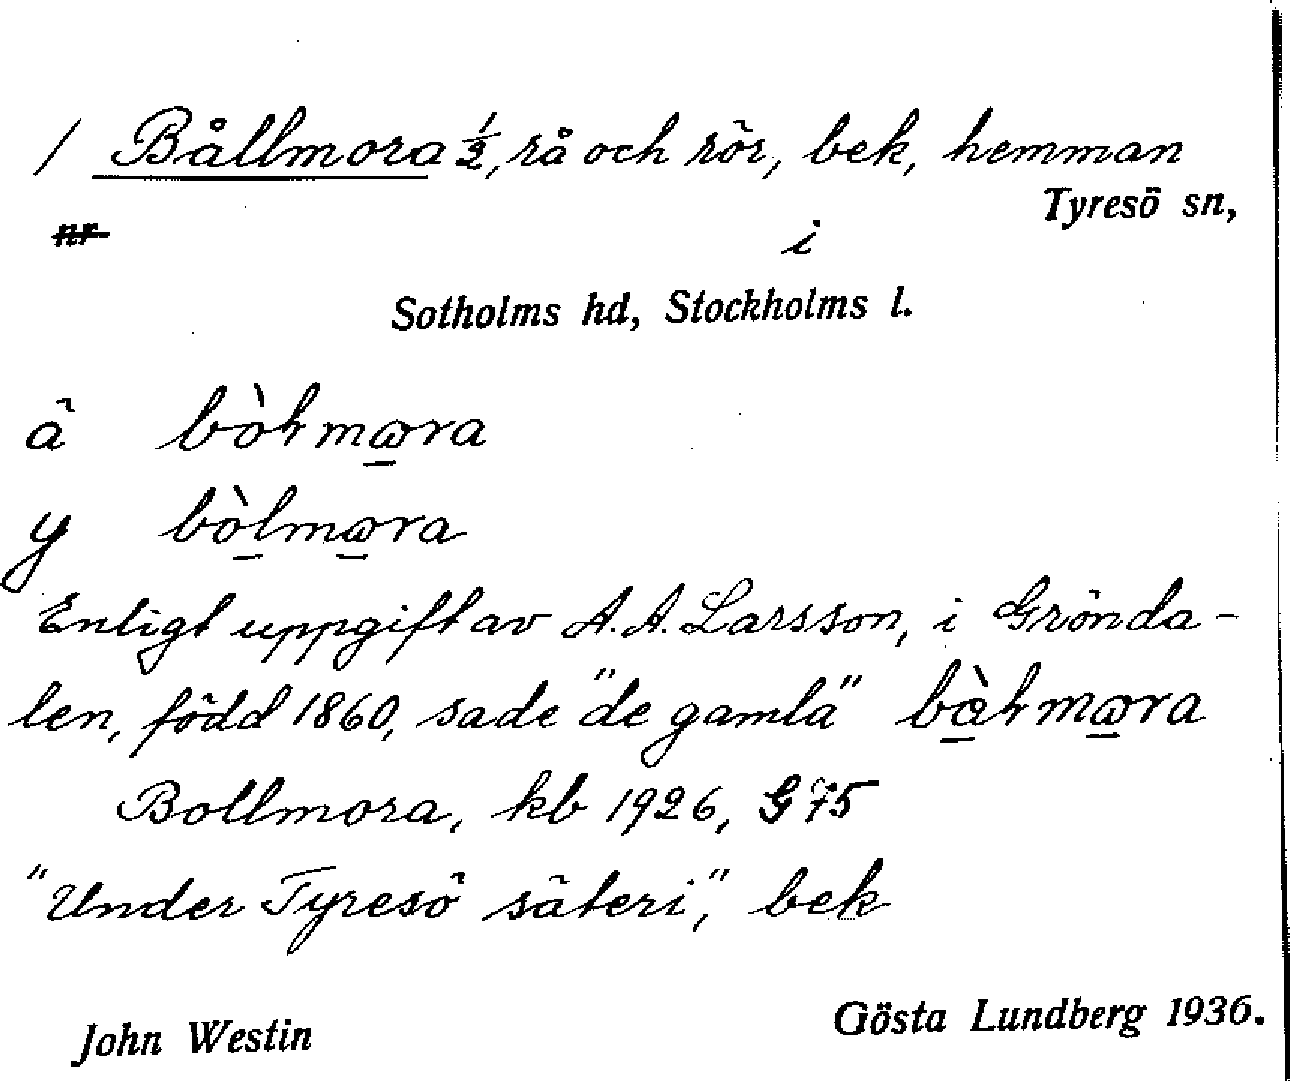 / Bållmora ½, rå och rör, bek, hemman
Tyresö sn,
nr
i
Sotholms hd, Stockholms l.
ä bòɫmɷ̲ra
y bò̲lmɷ̲ra
Enligt uppgift av A.A. Larsson, i Grönda-
len, född 1860, sade "de gamla" bà̲ɫmɷ̲ra
Bollmora, kb 1926, G 75
"Under Tyresö säteri", bek
John Westin
Gösta Lundberg 1936.